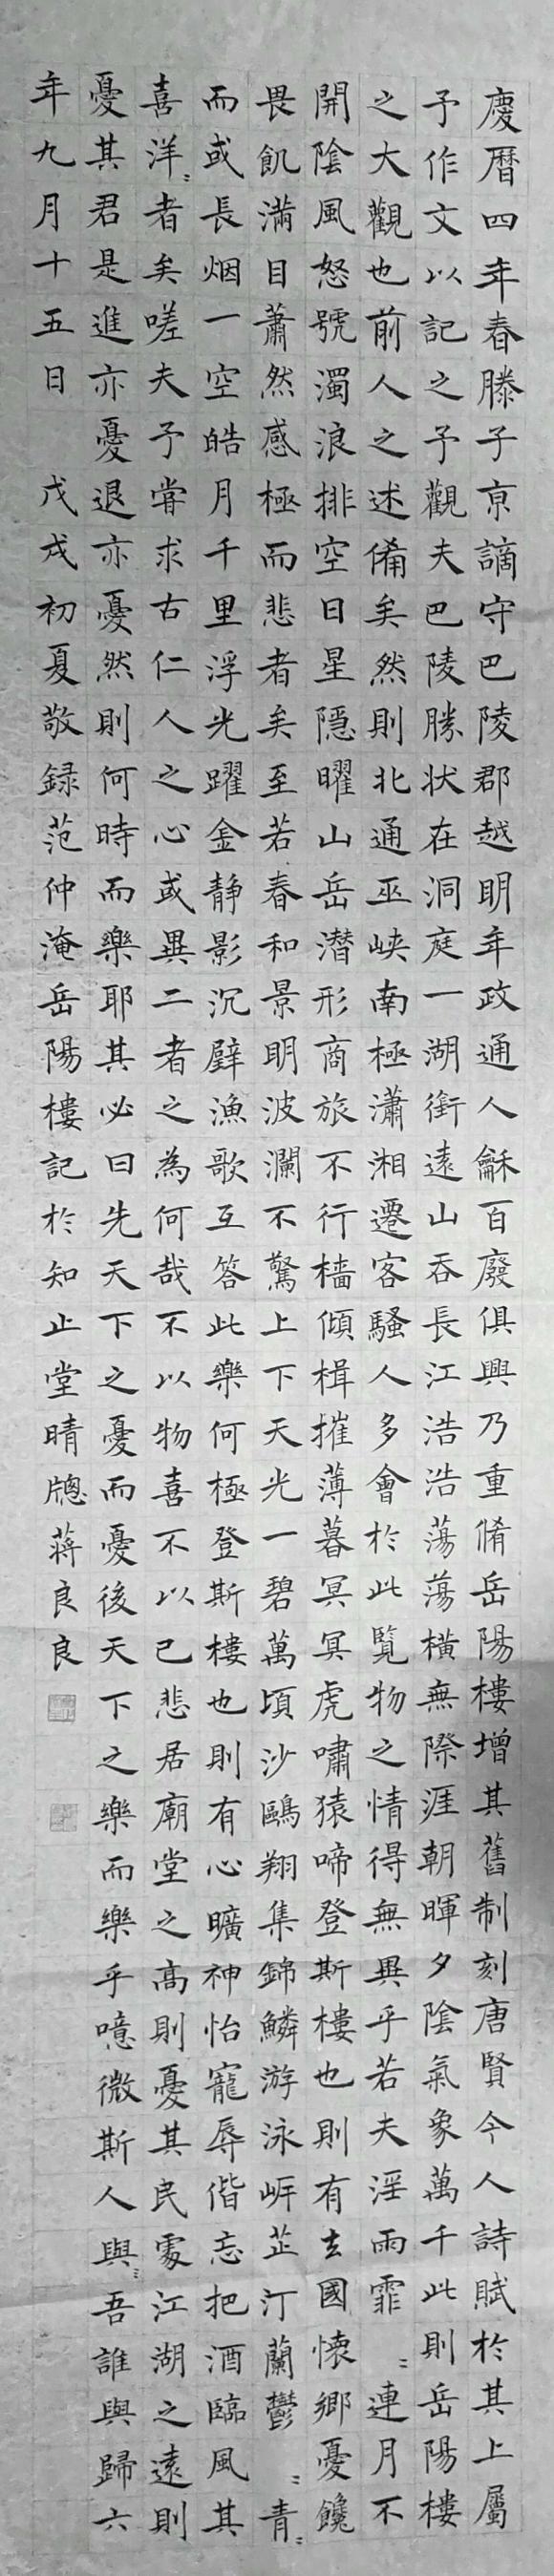 慶曆四年春滕子京謫守巴陵郡越明年政通人龢百廢俱興乃重脩岳陽樓增其舊制刻唐賢今人詩賦於其上屬
予作文以記之予觀夫巴陵勝狀在洞庭一湖銜遠山吞長江浩浩蕩蕩橫無際涯朝暉夕陰氣象萬千此則岳陽樓
之大觀也前人之述備矣然則北通巫峽南極瀟湘遷客騷人多會於此覽物之情得無異乎若夫淫雨霏〻連月不
開陰風怒號濁浪排空日星隱曜山岳潛形商旅不行檣傾楫摧薄暮冥冥虎嘯猿啼登斯樓也則有去國懷鄉憂饞
畏飢滿目蕭然感極而悲者矣至若春和景明波瀾不驚上下天光一碧萬頃沙鷗翔集錦鱗游泳岸芷汀蘭鬱〻青〻
而或長烟一空皓月千里浮光躍金靜影沉璧漁歌互答此樂何極登斯樓也則有心曠神怡寵辱偕忘把酒臨風其
喜洋〻者矣嗟夫予嘗求古仁人之心或異二者之為何哉不以物喜不以己悲居廟堂之高則憂其民處江湖之遠則
憂其君是進亦憂退亦憂然則何時而樂耶其必曰先天下之憂而憂後天下之樂而樂乎噫微斯人與〻吾誰與歸六
年九月十五日 戊戌初夏敬錄范仲淹岳陽樓記於知止堂晴牕蔣良良